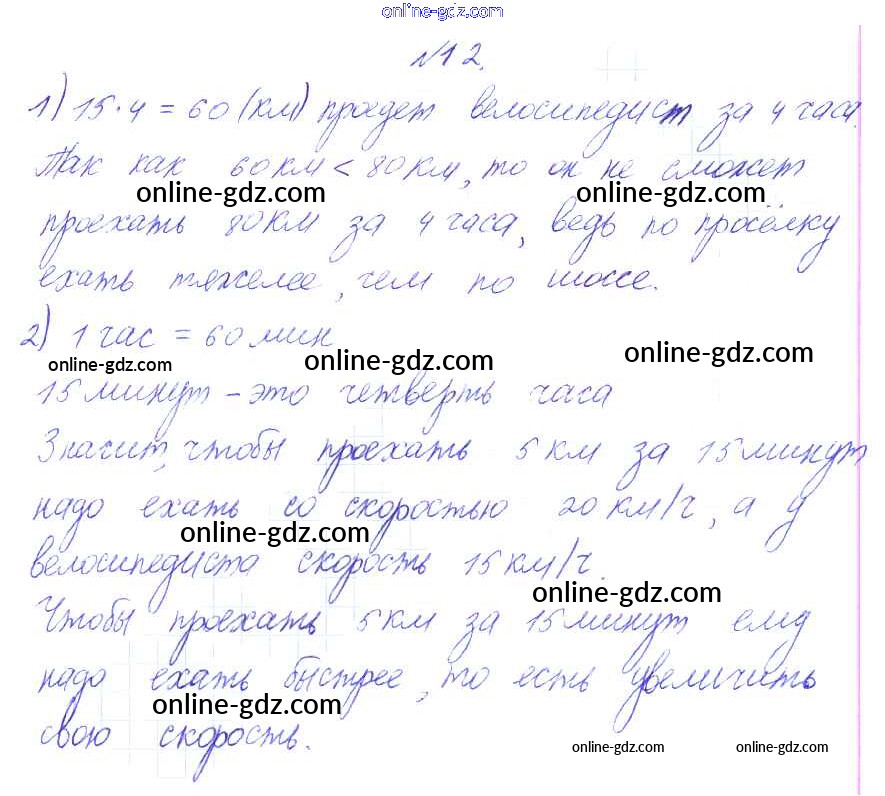 online-gdz.com
№12.
1) 15·4 = 60 (км) проедет велосипедист за 4 часа.
Так как 60 км < 80 км, то он не сможет
online-gdz.com online-gdz.com
проехать 80 км за 4 часа, ведь по просёлку
ехать тяжелее, чем по шоссе.
2) 1 час = 60 мин
online-gdz.com online-gdz.com online-gdz.com
15 минут – это четверть часа
Значит, чтобы проехать 5 км за 15 минут
надо ехать со скоростью 20 км/ч, а у
online-gdz.com
велосипедиста скорость 15 км/ч.
online-gdz.com
Чтобы проехать 5 км за 15 минут ему
надо ехать быстрее, то есть увеличить
online-gdz.com
свою скорость.
online-gdz.com online-gdz.com